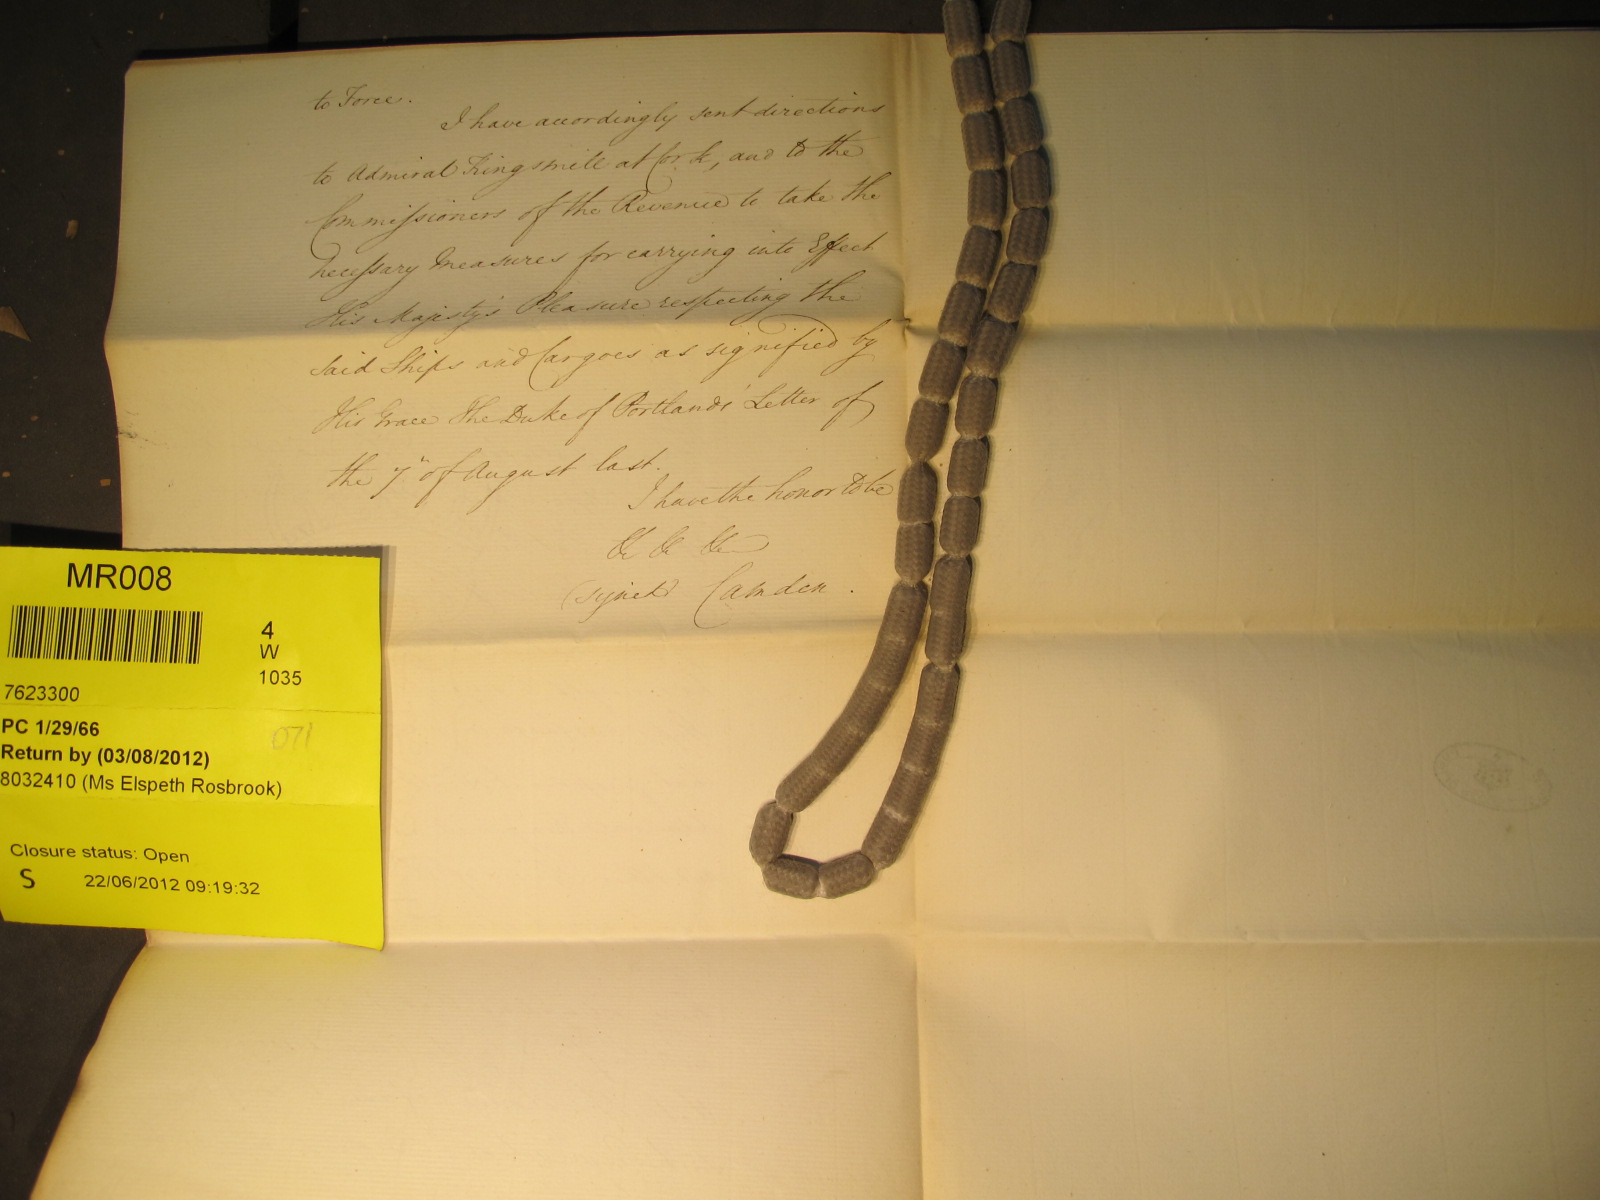 to Force.
I have accordingly sent directions
to Admiral Kingsmill at Cork, and to the
Commissioners of the Revenue to take the
necessary Measures for carrying into Effect
His Majesty's Pleasure respecting the
said Ships and Cargoes as signified by
His Grace The Duke of Portlands' Letter of
the 7th of August last.
I have the honor to be
&c &c &c
(signed) Camden.
MR008
4
W
1035
7623300
PC 1/29/66
071
Return by (03/08/2012)
8032410 (Ms Elspeth Rosbrook)
Closure status: Open
S 22/06/2012 09:19:32